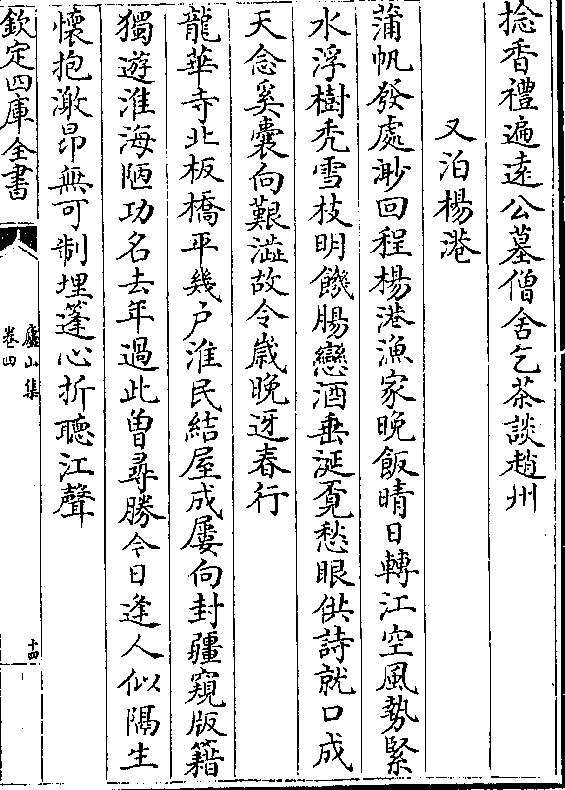 捻香禮遍逺公墓僧舍乞茶談趙州
又泊楊港
蒲帆發處渺回程楊港漁家晚飯晴日轉江空風勢緊
水浮樹禿雪枝明饑腸戀酒垂涎覔愁眼供詩就口成
天念奚囊向艱澁故令歳晚迓春行
龍華寺北板橋平幾戶淮民結屋成屢向封疆窺版籍
獨遊淮海陋功名去年過此曽尋勝今日逢人似隔生
懷抱激昂無可制埋蓬心折聽江聲
欽定四庫全書
廬山集
卷四
十四